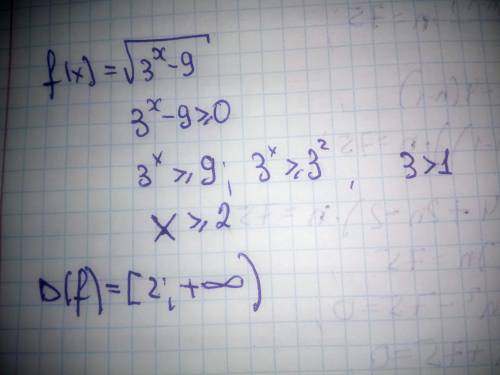 f(x) = √(3^x - 9)
3^x - 9 ⩾ 0
3^x ⩾ 9; 3^x ⩾ 3^2, 3 > 1
x ⩾ 2
D(f) = [2; +∞)